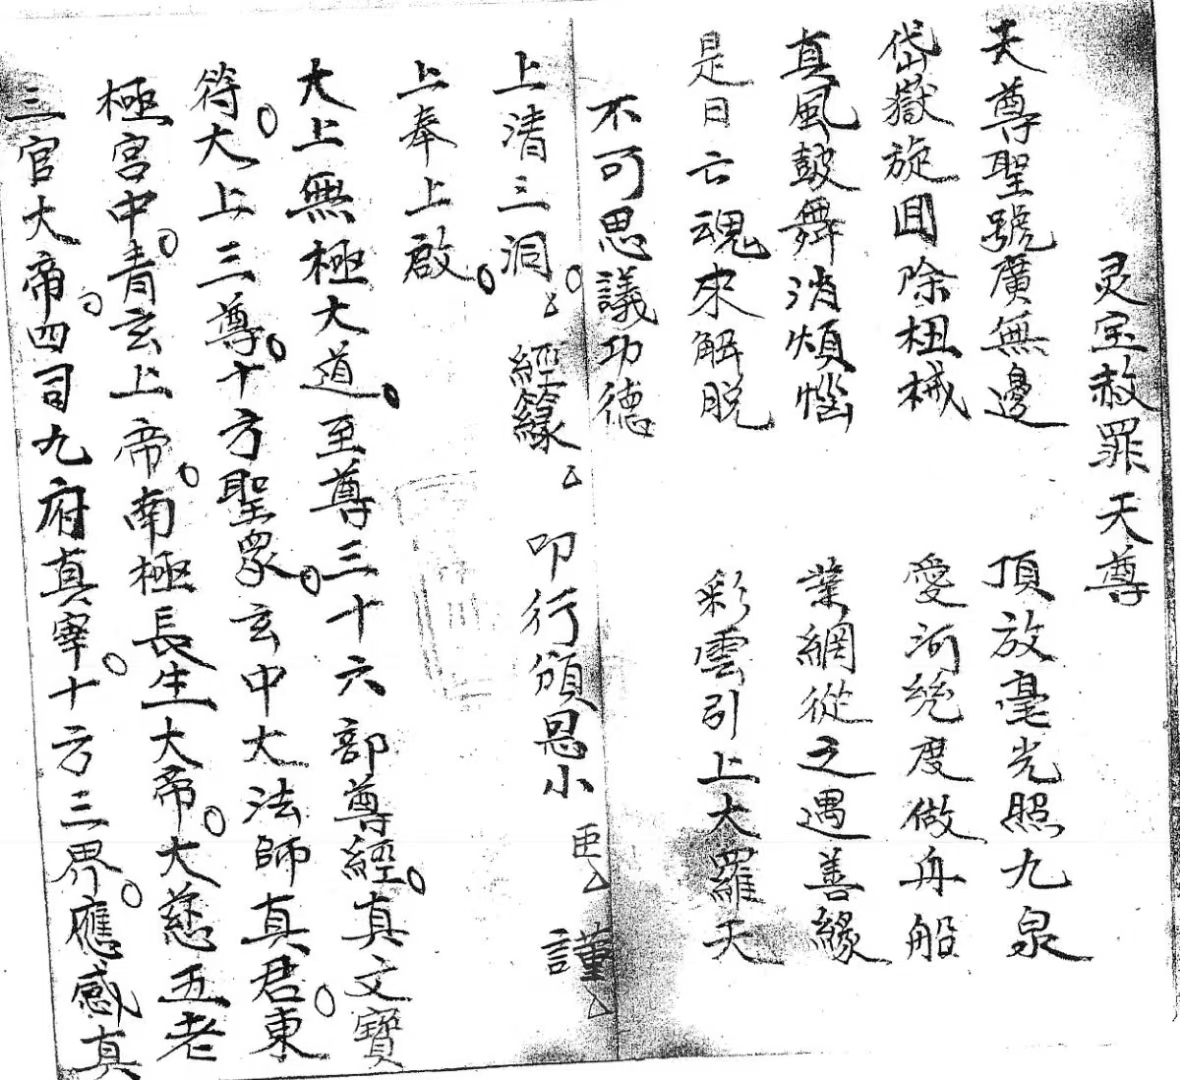 灵宝赦罪天尊
天尊聖號廣無邊 頂放毫光照九泉
岱嶽旋囬除杻械 愛河統度做舟船
真風鼓舞消煩惱 業網從之遇善緣
是日亡魂來解脱 彩雲引上大羅天
不可思議功德
上清三洞 經籙 叩行頒恩小 臣 謹
上奉上啟
大上無極大道 至尊三十六部尊經 真文寶
符 大上三尊 十方聖衆 玄中大法師真君 東
極宮中 青玄上帝 南極長生大帝 大慈五老
三官大帝 四司九府真宰 十方三界 應感真